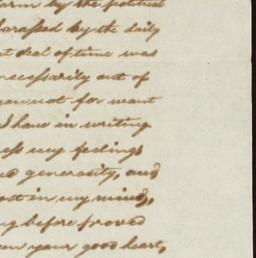 by the political
harassed by the daily
deal of time was
necessarily out of
not for want
I have in writing
my feelings
generosity, and
in my mind,
before proved
your good heart,